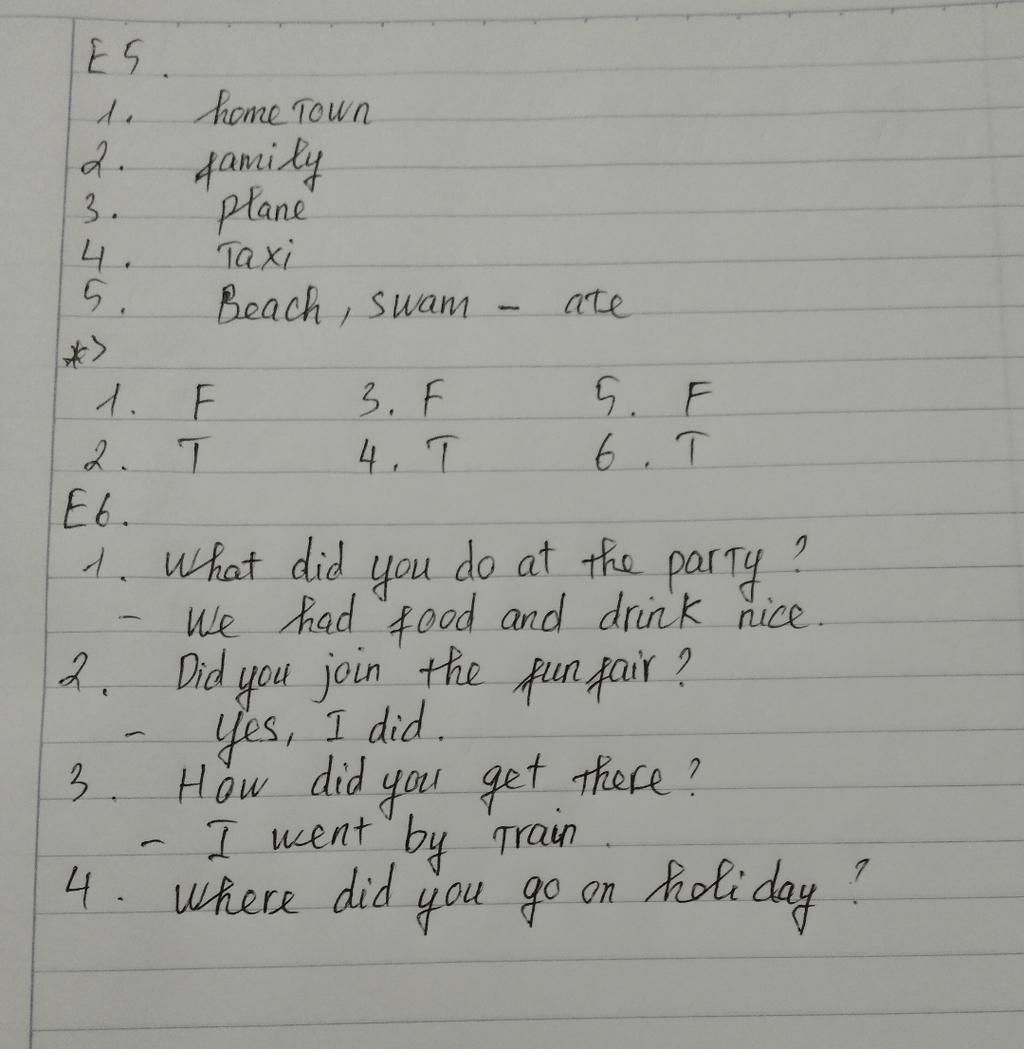 E5.
1. homeTown
2. family
3. plane
4. Taxi
5. Beach, swam - ate
*>
1. F 3. F 5. F
2. T 4. T 6. T
E6.
1. What did you do at the party?
- We had food and drink nice.
2. Did you join the funfair?
- Yes, I did.
3. How did you get there?
- I went by Train.
4. Where did you go on holiday?